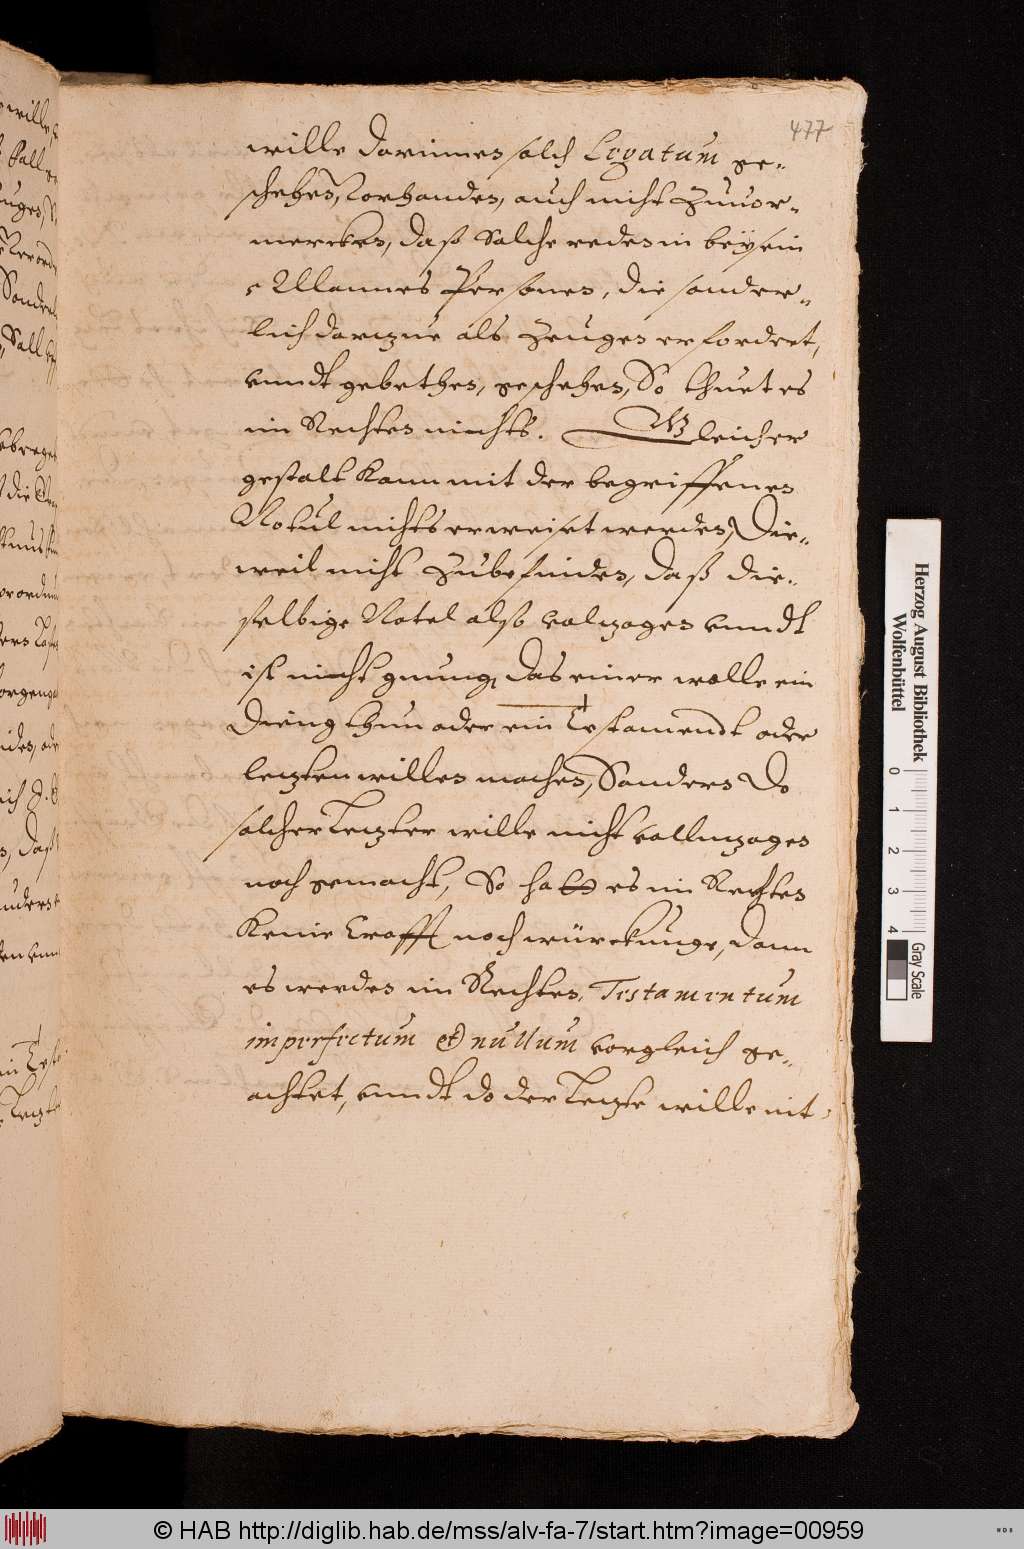 477
wille darinnen solch Legatum ge-
schehen, vorhanden, auch nicht zuuor-
mercken, daß solche reden in beÿsein
Mannes Personen, die sonder-
lich darzue als Zeugen erfordret,
vnndt gebethen, geschehen, So thuet es
im Rechten nichts. Gleicher
gestalt kann mit der begriffenen
Notul nichts erweiset werden, Die-
weil nicht zubefinden, daß die-
selbige Notel also volzogen vnndt
ist nicht gnung, das einer wolle ein
Dieng thun oder ein Testamendt oder
letzten willen machen, Sondern do
solcher letzter wille nicht vollnzogen
noch gemacht, So hatt es im Rechten
keine Crafft noch würckunge, dann
es werden im Rechten, Testamentum
imperfectum et nullum vorgleich ge-
achtet, vnndt do der letzte wille nit
Herzog August Bibliothek
Wolfenbüttel
0 1 2 3 4
Gray Scale
© HAB http://diglib.hab.de/mss/alv-fa-7/start.htm?image=00959